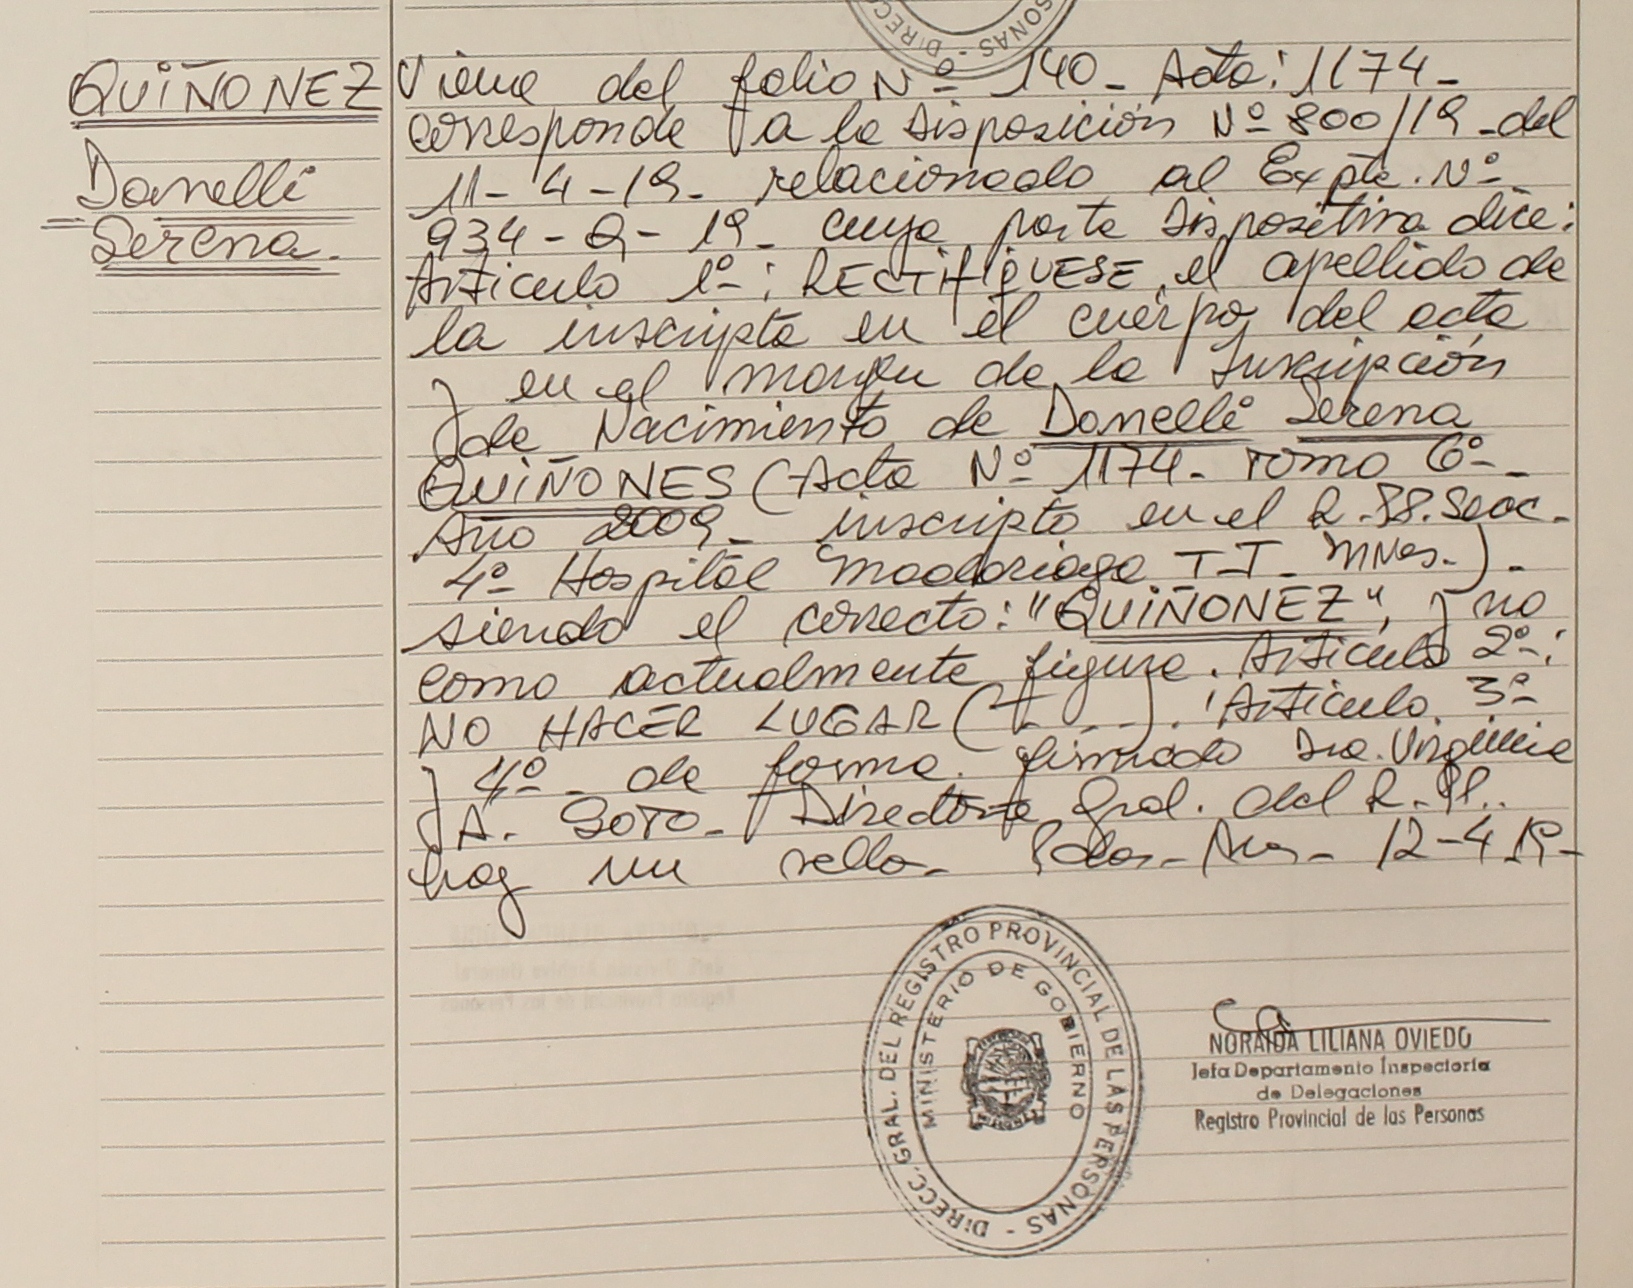 QUIÑONEZ
Danelli
Serena.
Viene del folio Nº 140_ Acta: 1174_
corresponde a la Disposición Nº 800/19_del
11_4_19_ relacionado al Expte. Nº
934_Q_19_ cuya parte Dispositiva dice:
Artículo 1º: RECTIFIQUESE el apellido de
la inscripta en el cuerpo del acta
y en el margen de la Inscripción
de Nacimiento de Danelli Serena
QUIÑONES (Acta Nº 1174_ Tomo 6º_
Año 2009_ inscripta en el R.PP. Secc.
4º Hospital Madariaga T_I_ Mnes.)_
siendo el correcto: "QUIÑONEZ", y no
como actualmente figura. Artículo 2º:
NO HACER LUGAR (_ _ _ _). Artículo 3º
y 4º_ de forma. firmado Dra. Virginia
A. SOTO_ Directora Gral. del R.PP.
hay un sello_ Pdas_ Mnes_ 12_4_19_
DIRECC. GRAL. DEL REGISTRO PROVINCIAL DE LAS PERSONAS -
MINISTERIO DE GOBIERNO
NORAIDA LILIANA OVIEDO
Jefa Departamento Inspectoría
de Delegaciones
Registro Provincial de las Personas